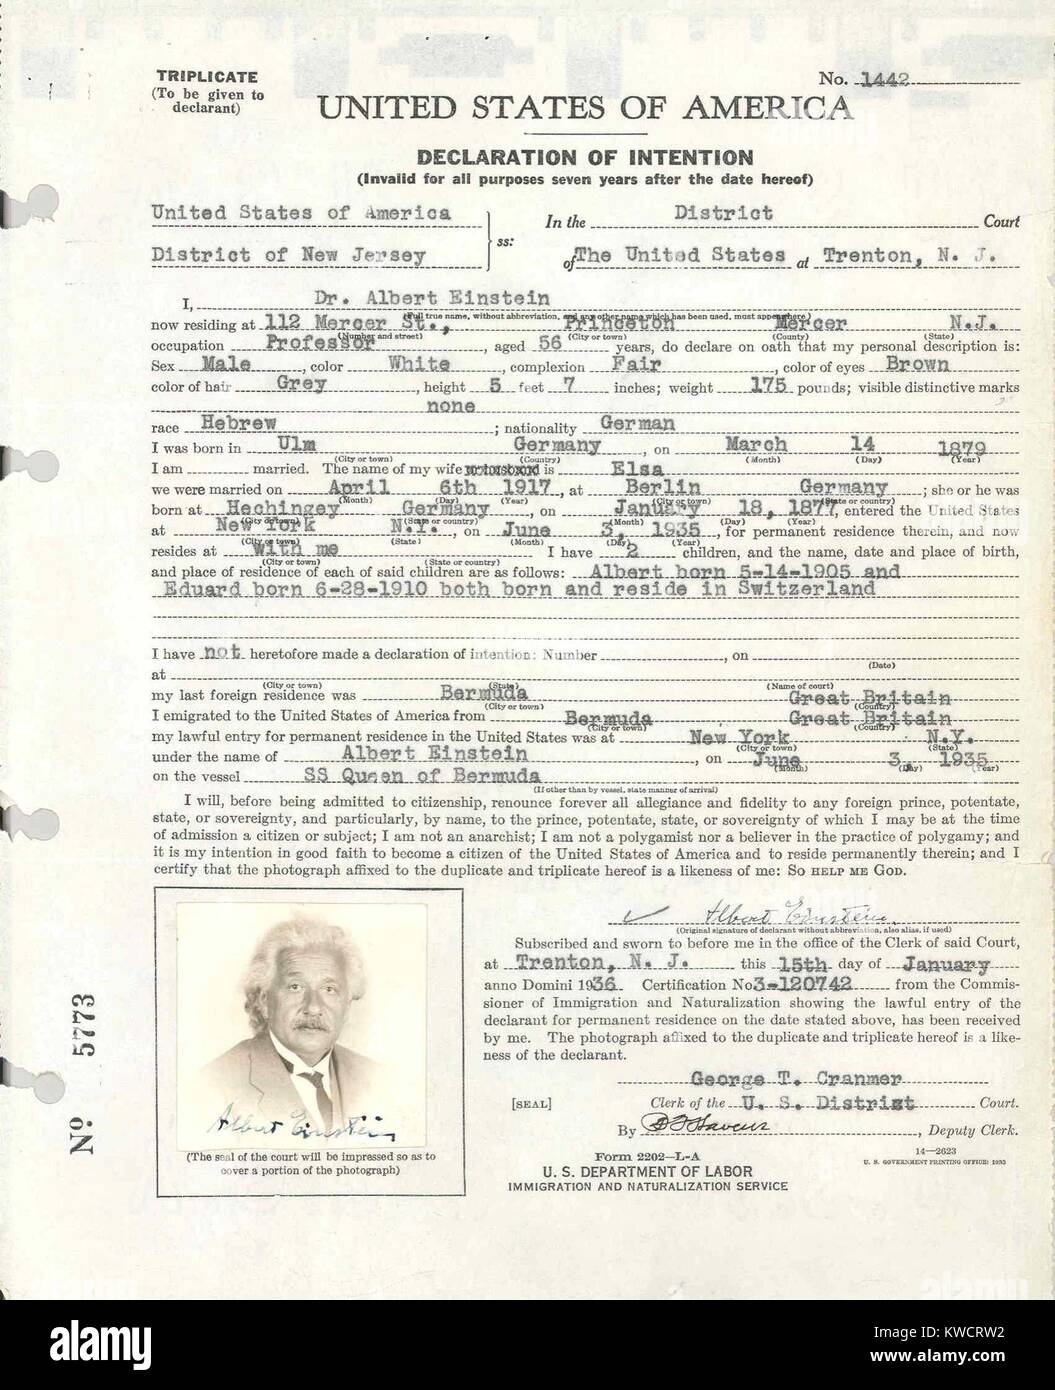 TRIPLICATE
(To be given to
declarant)
No. 1442
UNITED STATES OF AMERICA
DECLARATION OF INTENTION
(Invalid for all purposes seven years after the date hereof)
United States of America
District of New Jersey
ss:
In the District Court
of The United States at Trenton, N. J.
I, Dr. Albert Einstein
(Full true name, without abbreviation, and any other name which has been used, must appear here)
now residing at 112 Mercer St., Princeton Mercer N.J.
(Number and street) (City or town) (County) (State)
occupation Professor, aged 56 years, do declare on oath that my personal description is:
Sex Male, color White, complexion Fair, color of eyes Brown
color of hair Grey, height 5 feet 7 inches; weight 175 pounds; visible distinctive marks
none
race Hebrew; nationality German
I was born in Ulm Germany, on March 14 1879
(City or town) (Country) (Month) (Day) (Year)
I am married. The name of my wife or husband is Elsa
we were married on April 6th 1917, at Berlin Germany; she or he was
(Month) (Day) (Year) (City or town) (State or country)
born at Hechingey Germany, on January 18, 1877, entered the United States
(City or town) (State or country) (Month) (Day) (Year)
at New York N.Y., on June 3, 1935, for permanent residence therein, and now
(City or town) (State) (Month) (Day) (Year)
resides at with me I have 2 children, and the name, date and place of birth,
(City or town) (State or country)
and place of residence of each of said children are as follows: Albert born 5-14-1905 and
Eduard born 6-28-1910 both born and reside in Switzerland
I have not heretofore made a declaration of intention: Number , on
(Date)
at
(City or town) (State) (Name of court)
my last foreign residence was Bermuda Great Britain
(City or town) (Country)
I emigrated to the United States of America from Bermuda Great Britain
(City or town) (Country)
my lawful entry for permanent residence in the United States was at New York N.Y.
(City or town) (State)
under the name of Albert Einstein, on June 3, 1935
(Month) (Day) (Year)
on the vessel SS Queen of Bermuda
(If other than by vessel, state manner of arrival)
I will, before being admitted to citizenship, renounce forever all allegiance and fidelity to any foreign prince, potentate,
state, or sovereignty, and particularly, by name, to the prince, potentate, state, or sovereignty of which I may be at the time
of admission a citizen or subject; I am not an anarchist; I am not a polygamist nor a believer in the practice of polygamy; and
it is my intention in good faith to become a citizen of the United States of America and to reside permanently therein; and I
certify that the photograph affixed to the duplicate and triplicate hereof is a likeness of me: SO HELP ME GOD.
Albert Einstein.
(Original signature of declarant without abbreviation, also alias, if used)
Subscribed and sworn to before me in the office of the Clerk of said Court,
at Trenton, N. J. this 15th day of January
anno Domini 1936 Certification No 3-120742 from the Commis-
sioner of Immigration and Naturalization showing the lawful entry of the
declarant for permanent residence on the date stated above, has been received
by me. The photograph affixed to the duplicate and triplicate hereof is a like-
ness of the declarant.
George T. Cranmer
[SEAL] Clerk of the U. S. District Court.
By , Deputy Clerk.
Albert Einstein
(The seal of the court will be impressed so as to
cover a portion of the photograph)
No 5773
Form 2202-L-A
U. S. DEPARTMENT OF LABOR
IMMIGRATION AND NATURALIZATION SERVICE
14-2623
U. S. GOVERNMENT PRINTING OFFICE: 1933
alamy
Image ID: KWCRW2
www.alamy.com